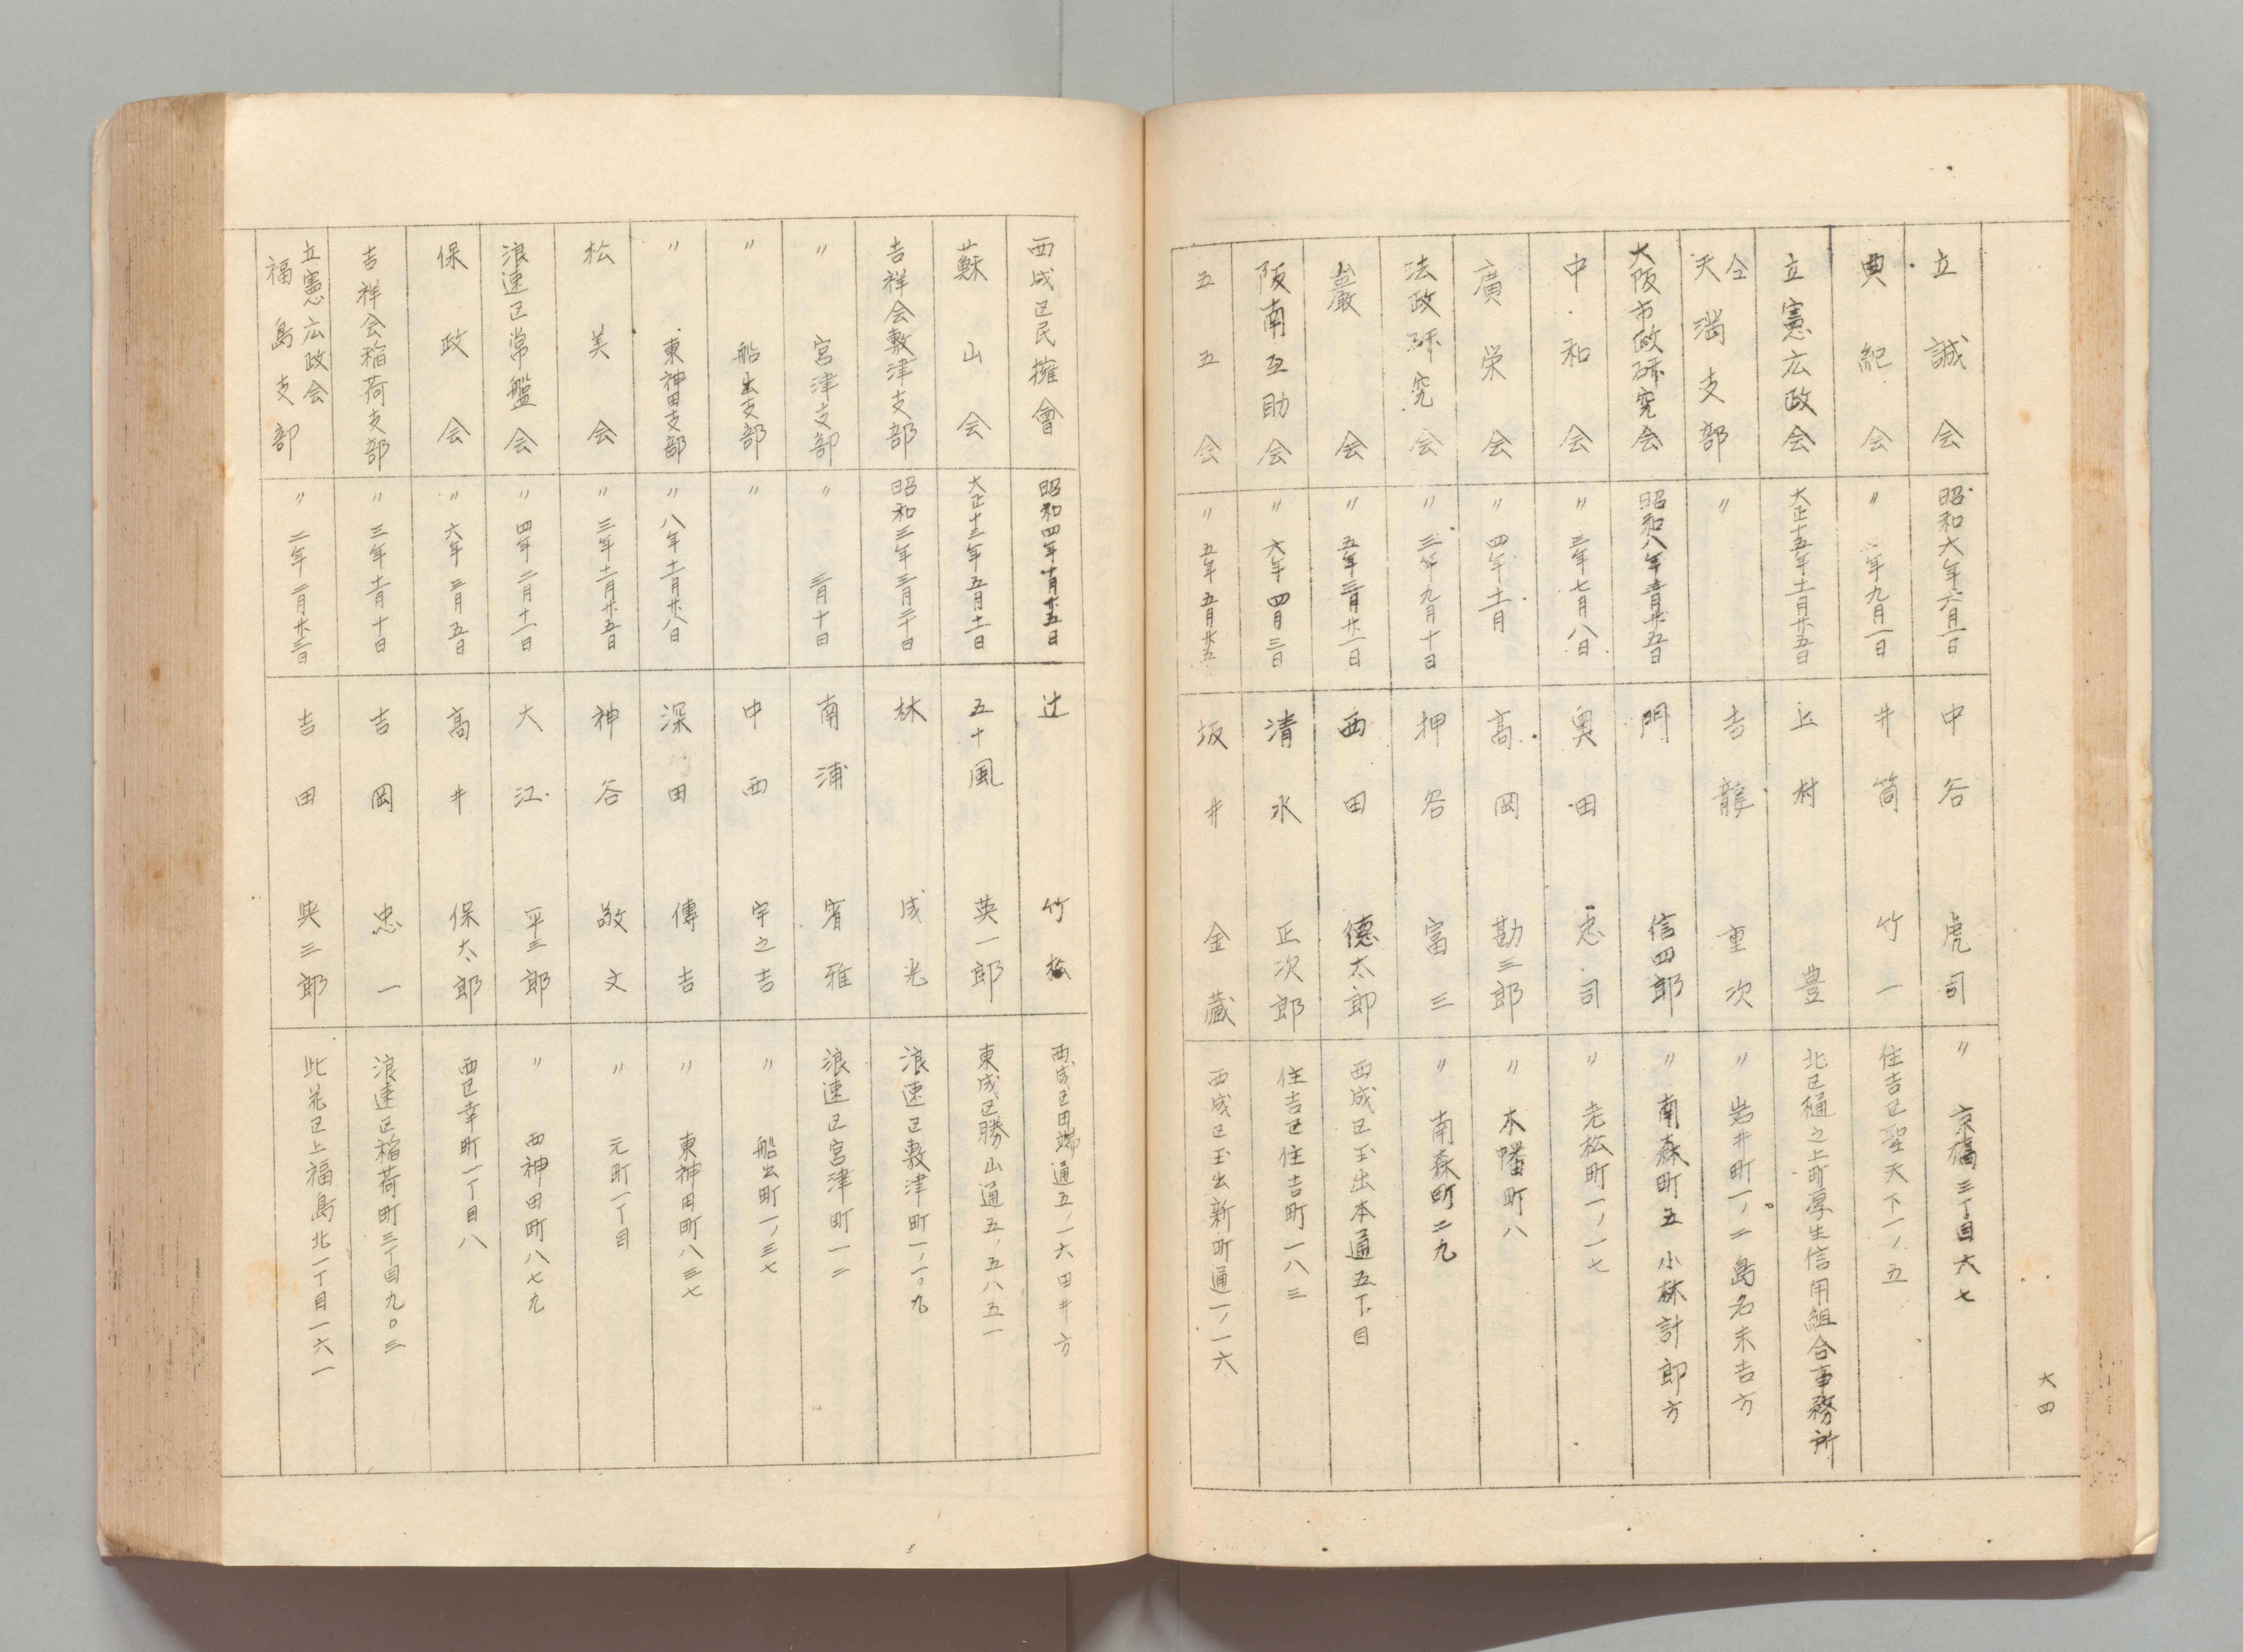 立誠会 昭和六年六月一日 中谷虎司 〃 京橋三丁目六七
典紀会 〃 年九月一日 井筒竹一 住吉区聖天下一ノ五
立憲広政会 大正十五年十一月廿五日 上村豊 北区樋之上町厚生信用組合事務所
仝天満支部 〃 吉龍重次 〃 岩井町一ノ二島名末吉方
大阪市政研究会 昭和八年三月廿五日 門信四郎 〃 南森町五小林計郎方
中和会 〃 三年七月八日 奥田忠司 〃 老松町一ノ一七
廣栄会 〃 四年十一月 高岡勘三郎 〃 木幡町八
法政研究会 〃 三年九月十日 押谷富三 〃 南森町二九
巖会 〃 五年三月廿一日 西田德太郎 西成区玉出本通五丁目
阪南互助会 〃 六年四月三日 清水正次郎 住吉区住吉町一八三
五五会 〃 五年五月廿五 坂井金蔵 西成区玉出新町通一ノ一六
六四
西成区民擁會 昭和四年十月廿五日 辻竹松 西成区田端通五ノ一六田井方
蘇山会 大正十三年五月十一日 五十風英一郎 東成区勝山通五ノ五八五一
吉祥会敷津支部 昭和三年三月二十日 林成光 浪速区敷津町一ノ一〇九
〃 宮津支部 〃 三月十日 南浦雅 浪速区宮津町一二
〃 船出支部 〃 中西宇之吉 〃 船出町一ノ三七
〃 東神田支部 〃 八年十一月廿八日 深田傳吉 〃 東神田町八三七
松美会 〃 三年十一月廿五日 神谷敬文 〃 元町一丁目
浪速区常盤会 〃 四年二月十一日 大江平三郎 〃 西神田町八七九
保政会 〃 六年三月五日 高井保太郎 西区幸町一丁目八
吉祥会稲荷支部 〃 三年十一月十日 吉岡忠一 浪速区稲荷町三丁目九〇三
立憲広政会福島支部 〃 二年二月廿三日 吉田與三郎 此花区上福島北一丁目一六一